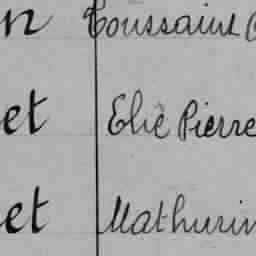 n Toussaint
et Elie Pierre
et Mathurin